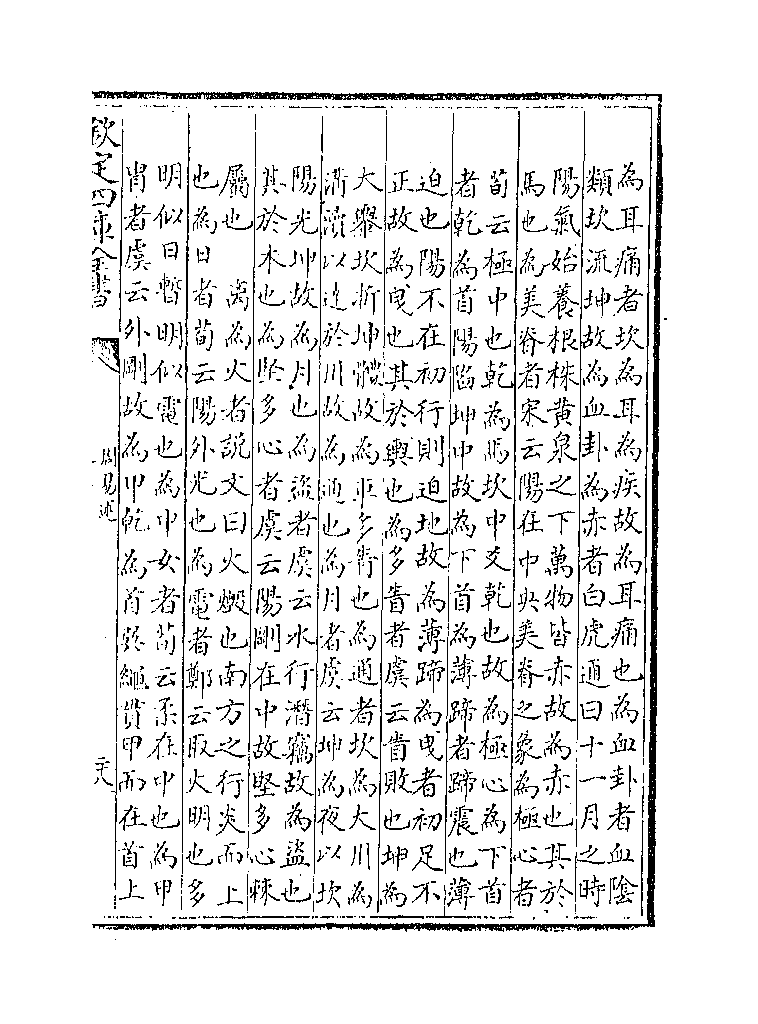 為耳痛者坎為耳為疾故為耳痛也為血卦者血陰
類坎流坤故為血卦為赤者白虎通曰十一月之時
陽氣始養根株黄泉之下萬物皆赤故為赤也其於
馬也為美脊者宋云陽在中央美脊之象為極心者
荀云極中也乾為馬坎中爻乾也故為極心為下首
者乾為首陽陷坤中故為下首為薄蹄者蹄震也薄
迫也陽不在初行則迫地故為薄蹄為曳者初足不
正故為曳也其於輿也為多眚者虞云眚敗也坤為
大轝坎折坤體故為車多眚也為通者坎為大川為
溝瀆以達於川故為通也為月者虞云坤為夜以坎
陽光坤故為月也為盜者虞云水行潛竊故為盜也
其於木也為堅多心者虞云陽剛在中故堅多心棘
屬也　離為火者說文曰火燬也南方之行炎而上
也為日者荀云陽外光也為電者鄭云取火明也多
明似日暫明似電也為中女者荀云柔在中也為甲
胄者虞云外剛故為甲乾為首巽繩貫甲而在首上
欽定四庫全書
周易述
二十八